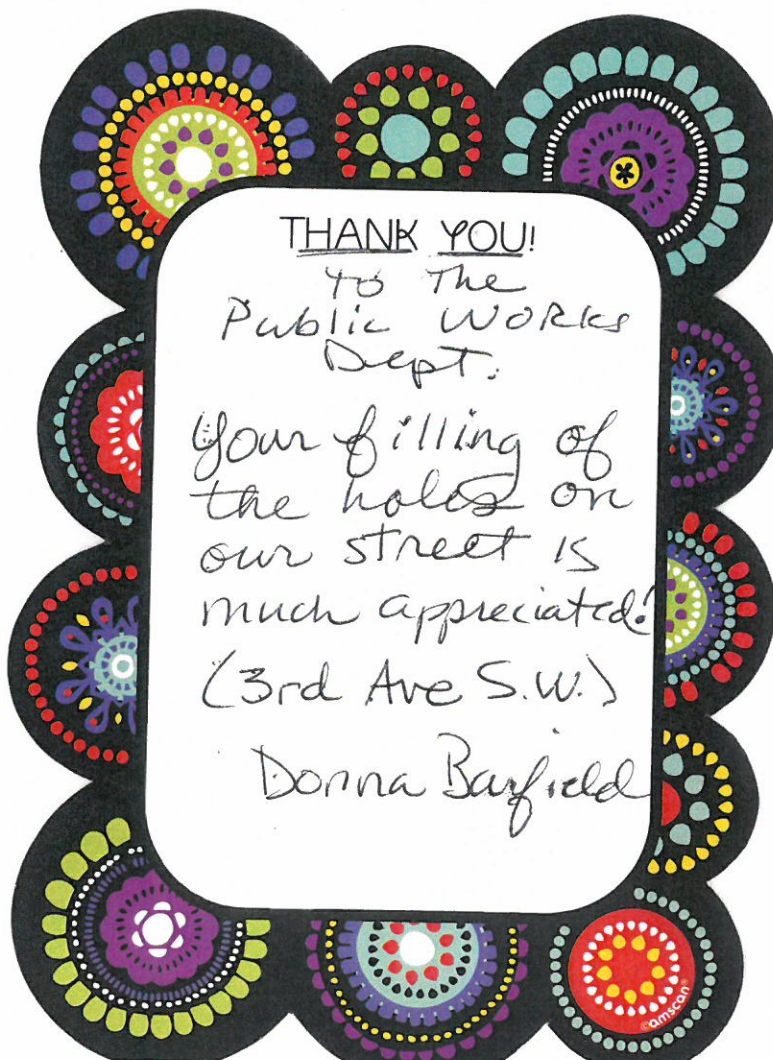 THANK YOU!
to The
Public Works
Dept.
Your filling of
the holes on
our street is
much appreciated!
(3rd Ave S.W.)
Donna Barfield
©amscan®